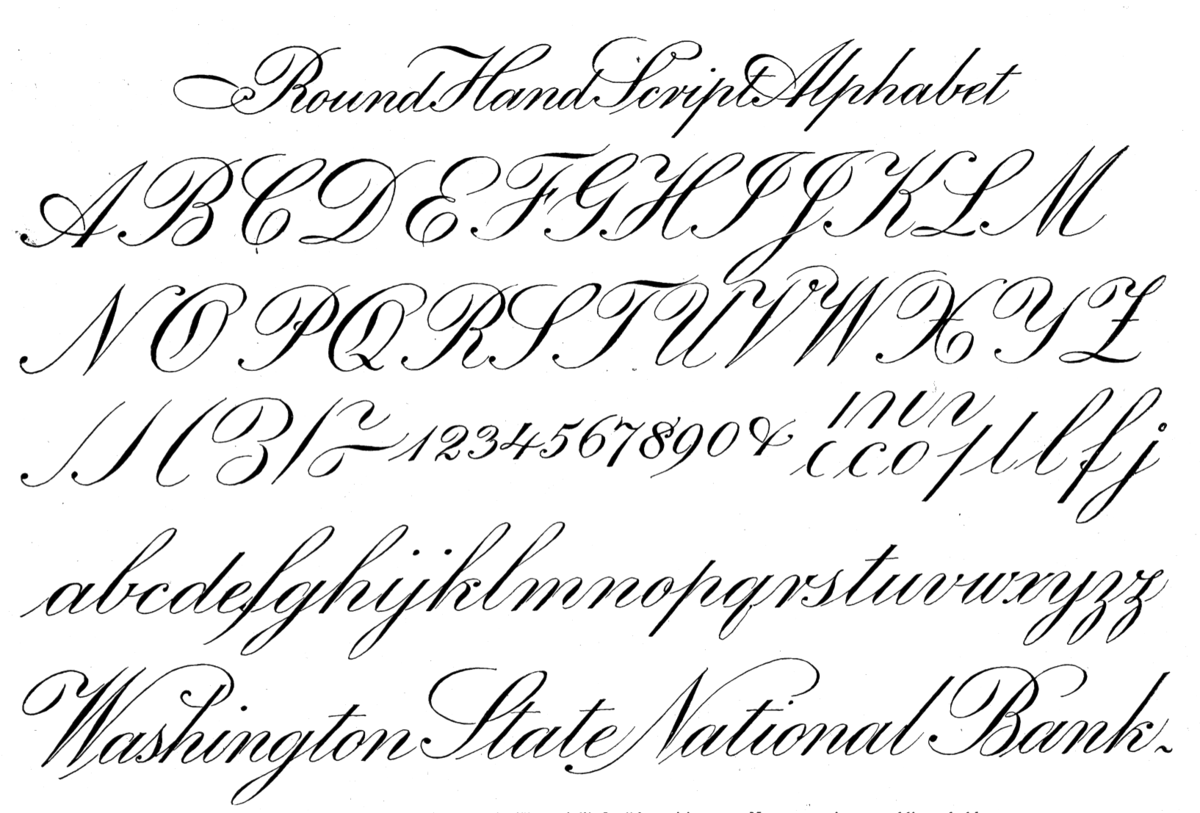 Round Hand Script Alphabet
A B C D E F G H I J K L M
N O P Q R S T U V W X Y Z
1234567890 &
l l f j
abcdefghijklmnopqrstuvwxyzz
Washington State National Bank.